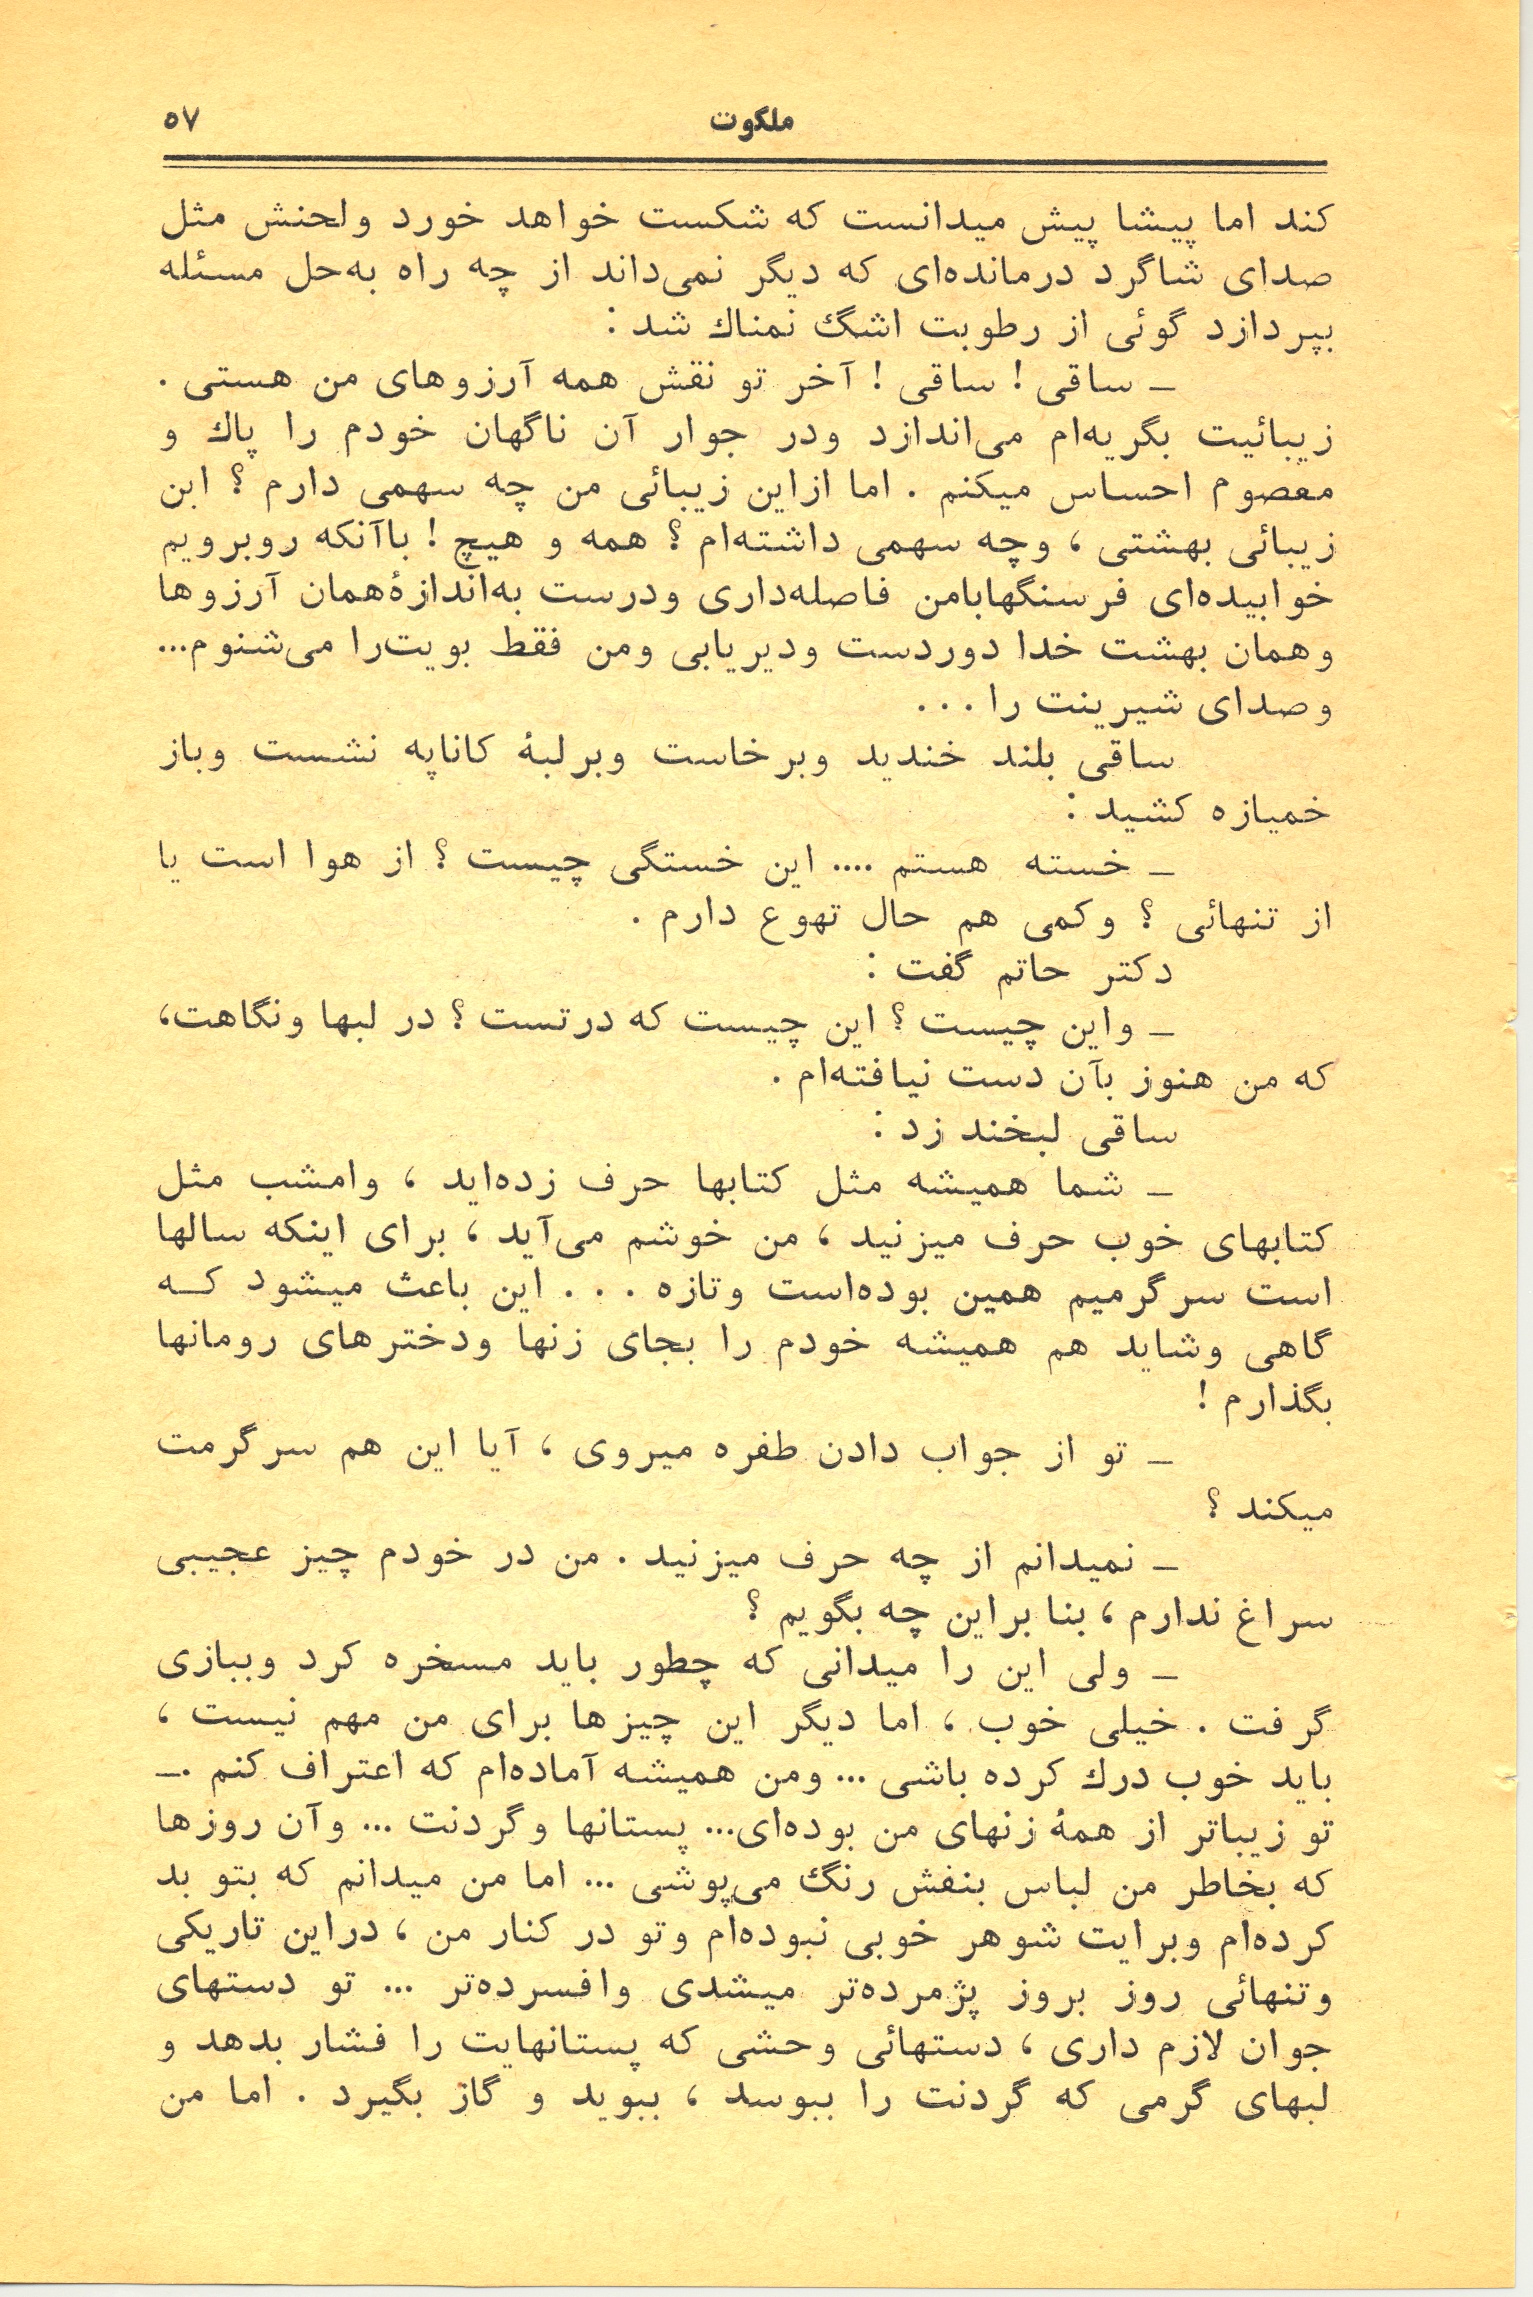 ملکوت ۵۷
کند اما پیشا پیش میدانست که شکست خواهد خورد ولحنش مثل
صدای شاگرد درمانده‌ای که دیگر نمی‌داند از چه راه به‌حل مسئله
بپردازد گوئی از رطوبت اشگ نمناك شد :
ــ ساقی ! ساقی ! آخر تو نقش همه آرزوهای من هستی .
زیبائیت بگریه‌ام می‌اندازد ودر جوار آن ناگهان خودم را پاك و
معصوم احساس میکنم . اما ازاین زیبائی من چه سهمی دارم ؟ این
زیبائی بهشتی ، وچه سهمی داشته‌ام ؟ همه و هیچ ! باآنکه روبرویم
خوابیده‌ای فرسنگهابامن فاصله‌داری ودرست به‌اندازهٔ‌همان آرزوها
وهمان بهشت خدا دوردست ودیریابی ومن فقط بویت‌را می‌شنوم...
وصدای شیرینت را . . .
ساقی بلند خندید وبرخاست وبرلبهٔ کاناپه نشست وباز
خمیازه کشید :
ــ خسته هستم .... این خستگی چیست ؟ از هوا است یا
از تنهائی ؟ وکمی هم حال تهوع دارم .
دکتر حاتم گفت :
ــ واین چیست ؟ این چیست که درتست ؟ در لبها ونگاهت،
که من هنوز بآن دست نیافته‌ام .
ساقی لبخند زد :
ــ شما همیشه مثل کتابها حرف زده‌اید ، وامشب مثل
کتابهای خوب حرف میزنید ، من خوشم می‌آید ، برای اینکه سالها
است سرگرمیم همین بوده‌است وتازه . . . این باعث میشود کــه
گاهی وشاید هم همیشه خودم را بجای زنها ودخترهای رومانها
بگذارم !
ــ تو از جواب دادن طفره میروی ، آیا این هم سرگرمت
میکند ؟
ــ نمیدانم از چه حرف میزنید . من در خودم چیز عجیبی
سراغ ندارم ، بنا براین چه بگویم ؟
ــ ولی این را میدانی که چطور باید مسخره کرد وببازی
گرفت . خیلی خوب ، اما دیگر این چیزها برای من مهم نیست ،
باید خوب درك کرده باشی ... ومن همیشه آماده‌ام که اعتراف کنم .ــ
تو زیباتر از همهٔ زنهای من بوده‌ای... پستانها وگردنت ... وآن روزها
که بخاطر من لباس بنفش رنگ می‌پوشی ... اما من میدانم که بتو بد
کرده‌ام وبرایت شوهر خوبی نبوده‌ام وتو در کنار من ، دراین تاریکی
وتنهائی روز بروز پژمرده‌تر میشدی وافسرده‌تر ... تو دستهای
جوان لازم داری ، دستهائی وحشی که پستانهایت را فشار بدهد و
لبهای گرمی که گردنت را ببوسد ، ببوید و گاز بگیرد . اما من